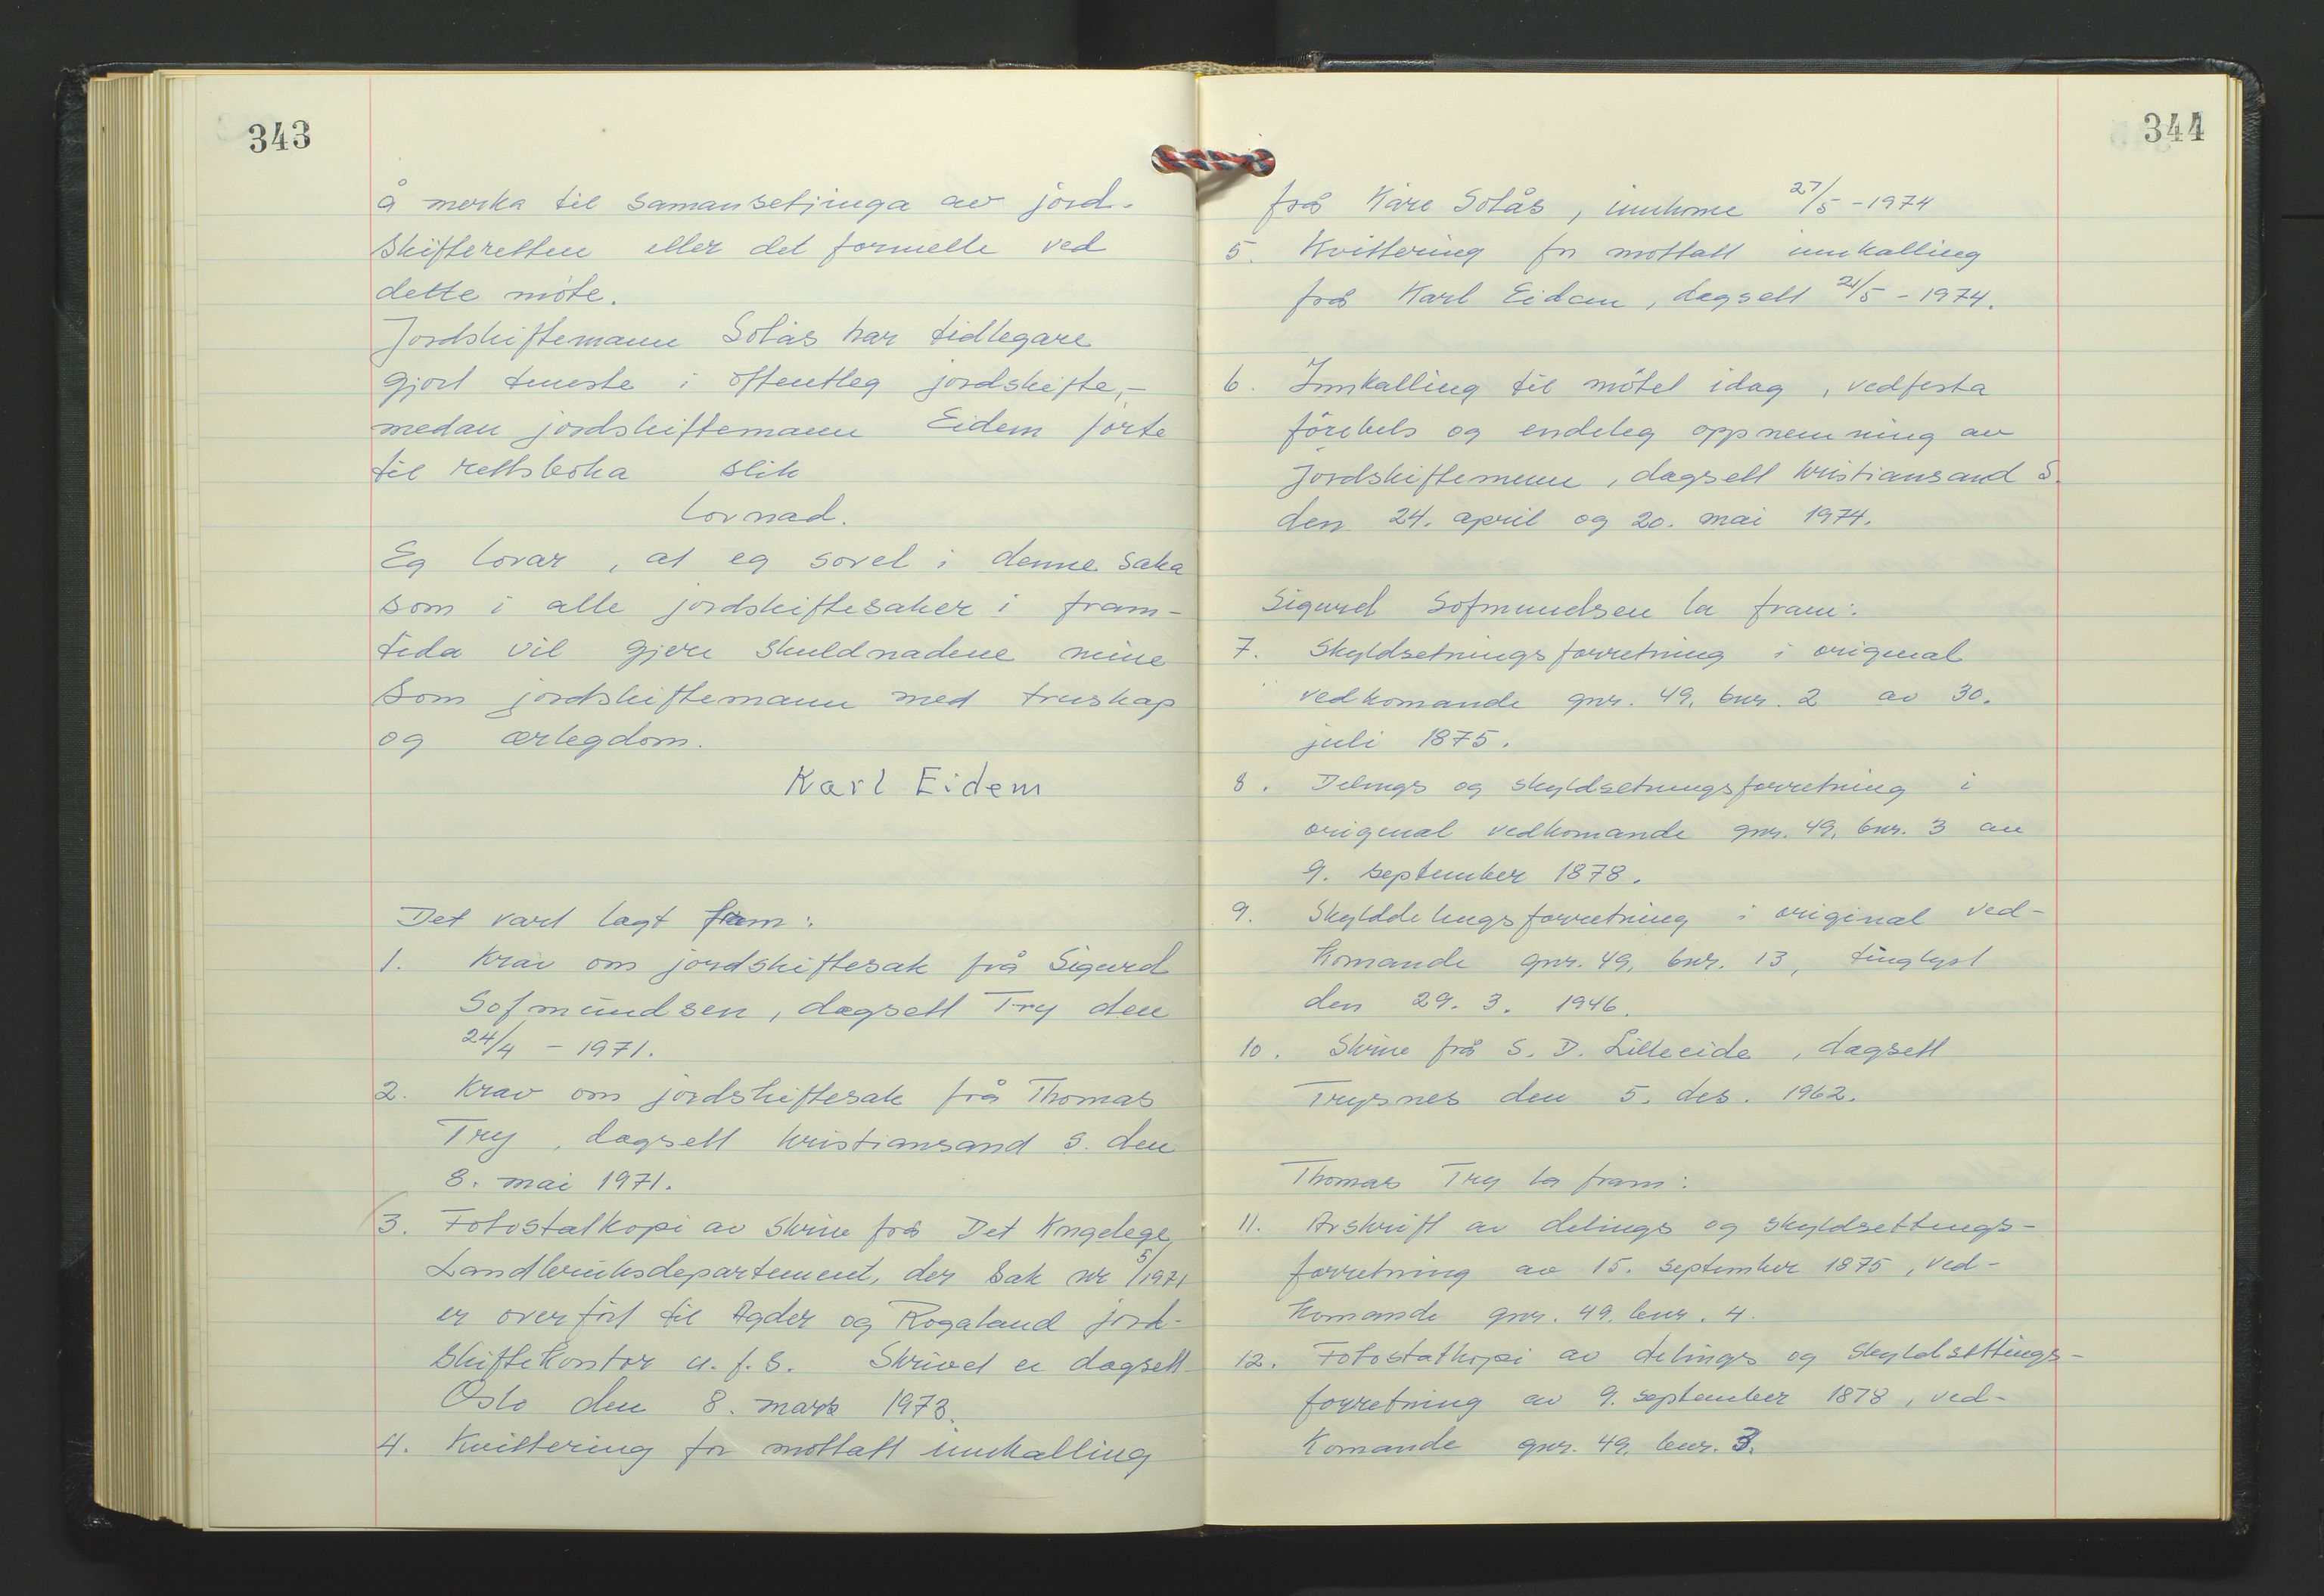 343
å merka til samansetjinga av jord-
skifteretten eller det formelle ved
dette møte.
Jordskiftemann Solås har tidlegare
gjort teneste i offentleg jordskifte,-
medan jordskiftemann Eidem førte
til rettsboka slik
lovnad.
Eg lovar, at eg sovel i denne saka
som i alle jordskiftesaker i fram-
tida vil gjere skuldnadene mine
som jordskiftemann med truskap
og ærlegdom.
Karl Eidem
Det vart lagt fram:
1. Krav om jordskiftesak frå Sigurd
Sofmundsen, dagsett Try den
24/4 - 1971.
2. Krav om jordskiftesak frå Thomas
Try, dagsett Kristiansand S. den
8. mai 1971.
3. Fotostatkopi av skriv frå Det Kngelege
Landbruksdepartement, der sak nr 5/1971
er overført til Agder og Rogaland jord-
skiftekontor u.f.s. Skrivet er dagsett
Oslo den 8. mars 1973.
4. Kvittering for mottatt innkalling
344
frå Kåre Solås, innkome 27/5 - 1974
5. Kvittering for mottatt innkalling
frå Karl Eidem, dagsett 21/5 - 1974.
6. Innkalling til møtet idag, vedfesta
førebels og endeleg oppnemning av
jordskiftemenn, dagsett Kristiansand S.
den 24. april og 20. mai 1974.
Sigurd Sofmundsen la fram:
7. Skyldsetningsforretning i original
vedkomande gnr. 49, bnr. 2 av 30.
juli 1875.
8. Delings og skyldsetningsforretning i
original vedkomande gnr. 49, bnr. 3 av
9. september 1878.
9. Skylddelingsforretning i original ved-
komande gnr. 49, bnr. 13, tinglyst
den 29. 3. 1946.
10. Skriv frå S. D. Lilleeide, dagsett
Trysnes den 5. des. 1962.
Thomas Try la fram:
11. Avskrift av delings og skyldsettings-
forretning av 15. september 1875, ved-
komande gnr. 49, bnr. 4.
12. Fotostatkopi av delings og skyldsettings-
forretning av 9. september 1878, ved-
komande gnr. 49, bnr. 3.